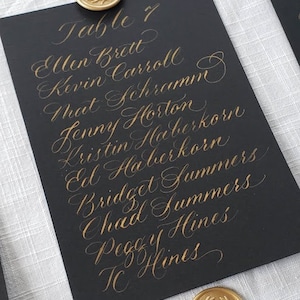 Table 7
Ellen Brett
Kevin Carroll
Mat Schramm
Jenny Horton
Kristin Haberkorn
Ed Haberkorn
Bridget Summers
Chad Summers
Peggy Hines
Tc Hines